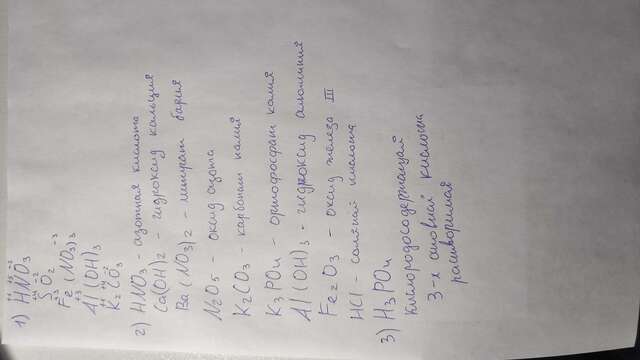 1) HNO3
SO2
Fe(NO3)3
Al(OH)3
K2CO3
2) HNO3 - азотная кислота
Ca(OH)2 - гидроксид кальция
Ba(NO3)2 - нитрат бария
N2O5 - оксид азота
K2CO3 - карбонат калия
K3PO4 - ортофосфат калия
Al(OH)3 - гидроксид алюминия
Fe2O3 - оксид железа III
HCl - соляная кислота
3) H3PO4
Кислородосодержащая
3-х основная кислота
растворимая